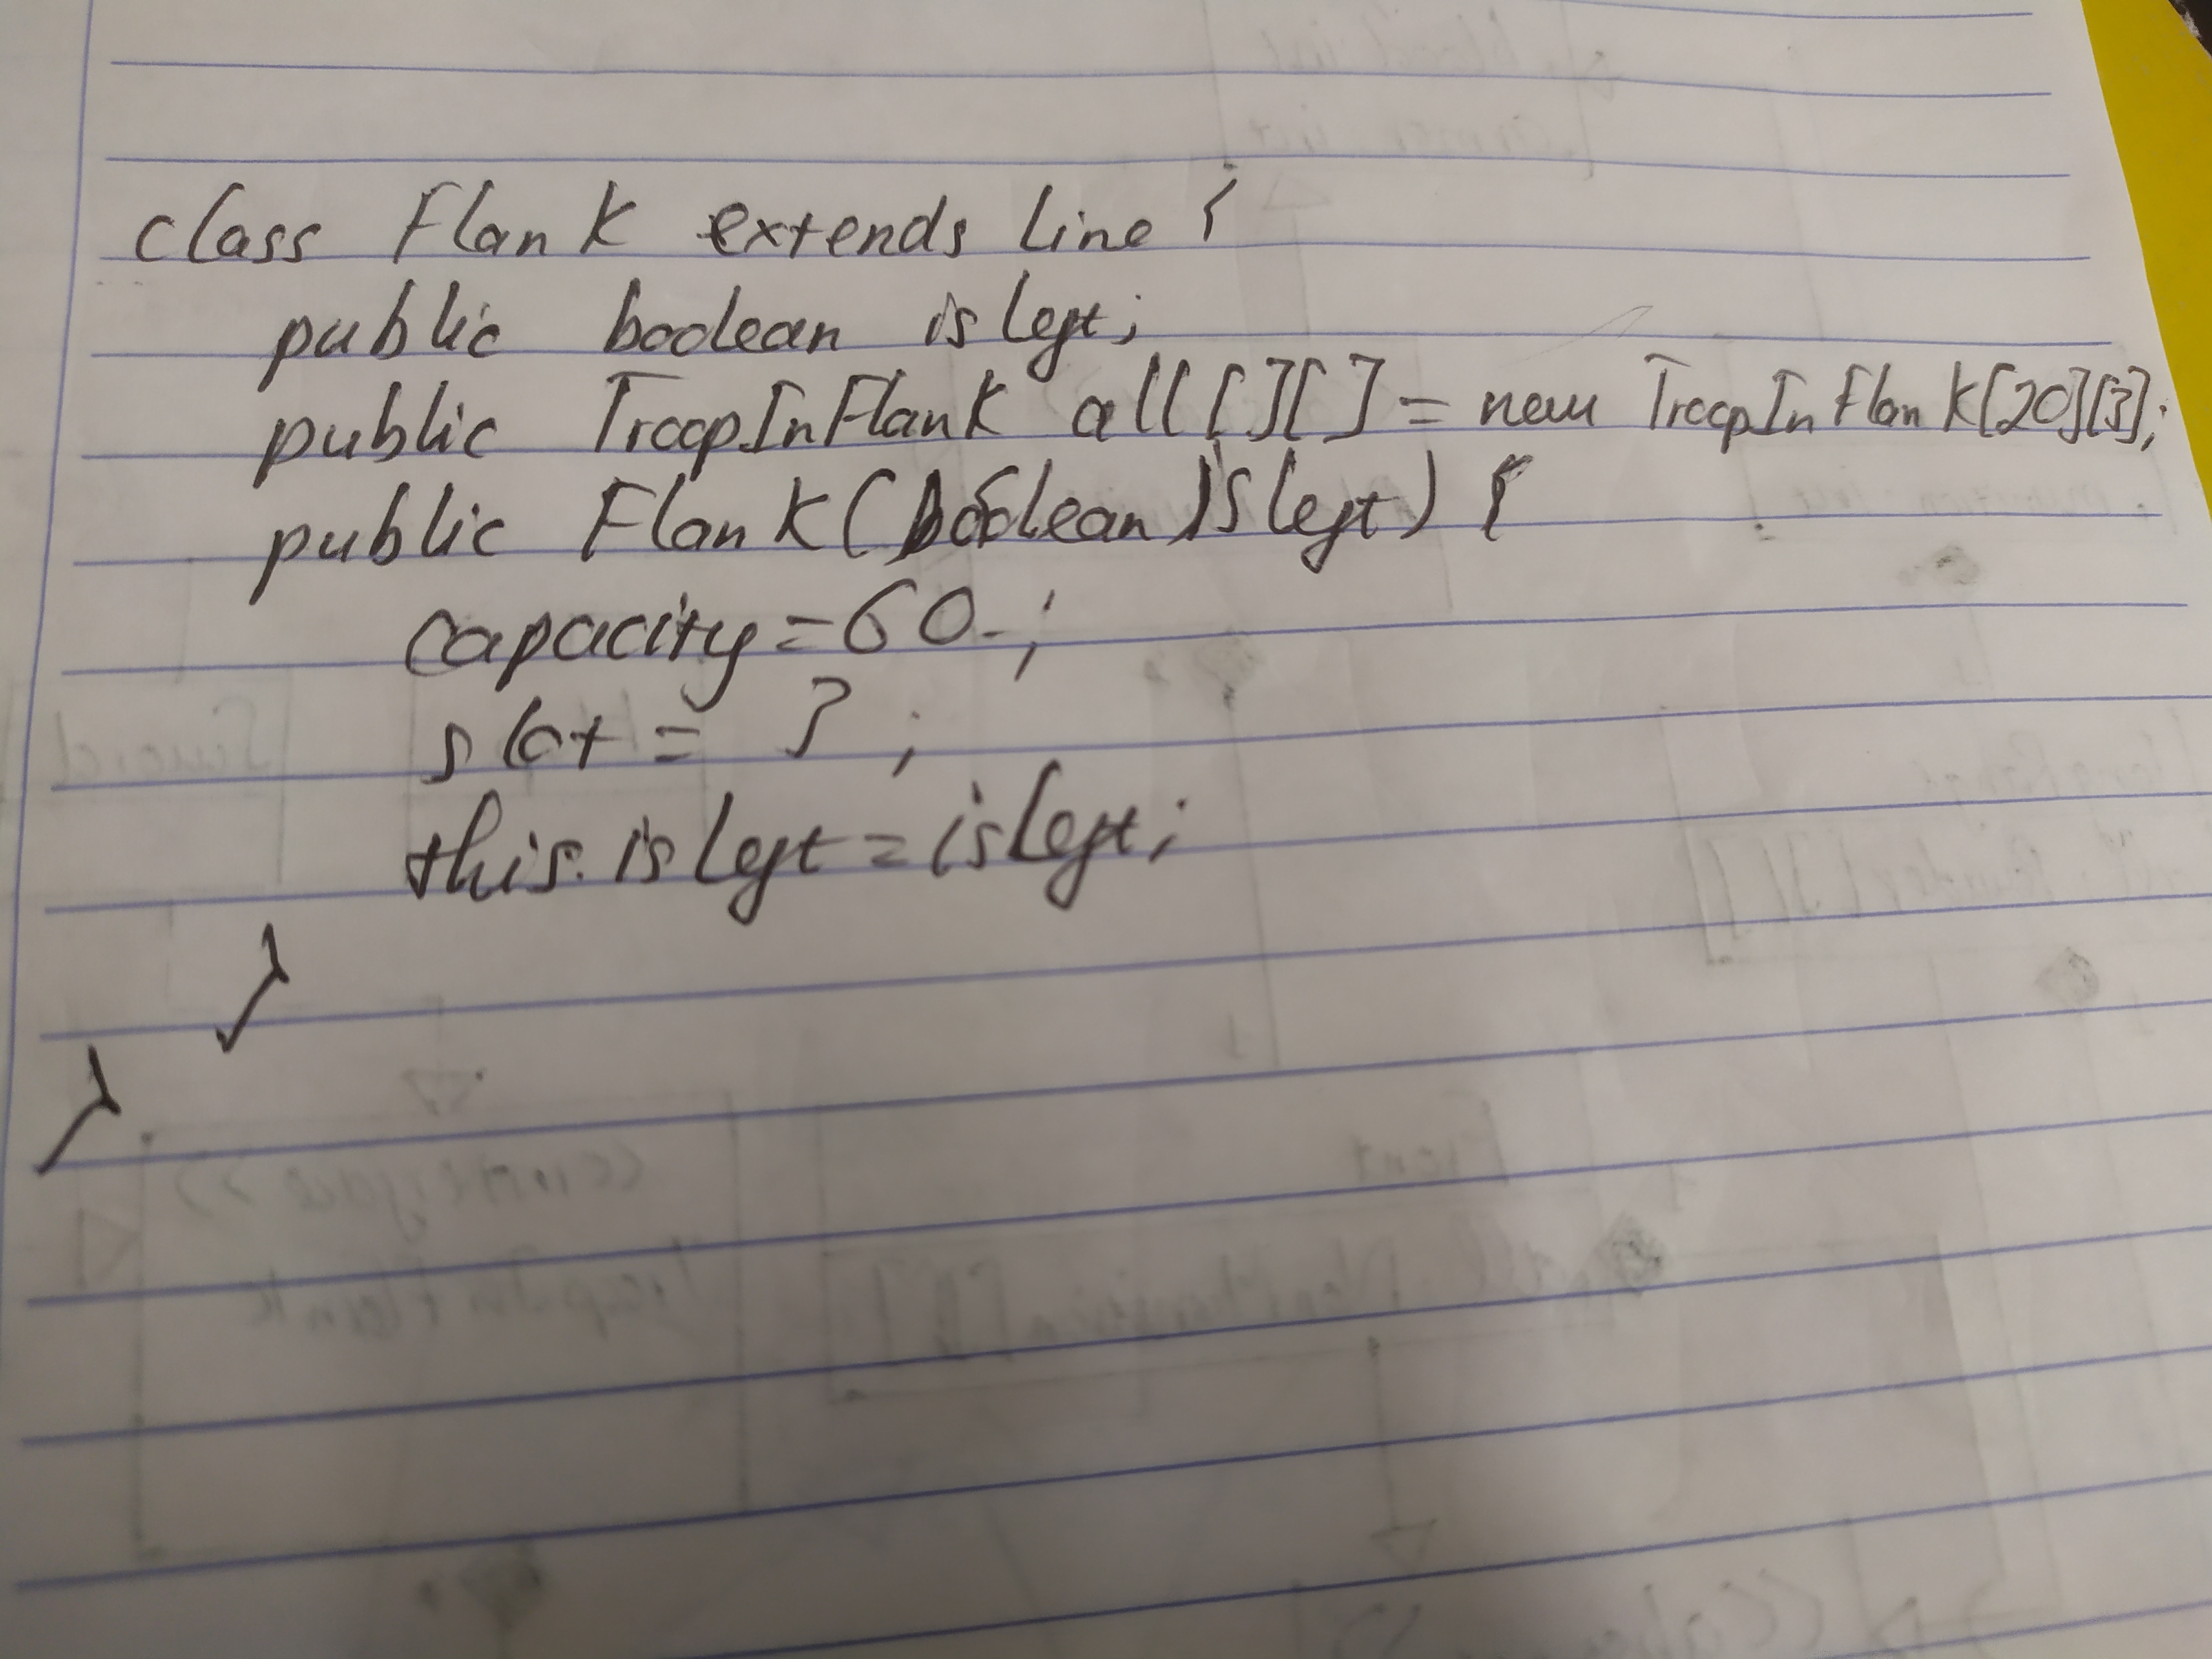 class Flank extends Line {
public boolean isLeft;
public TroopInFlank all[][] = new TroopInFlank[20][3];
public Flank(boolean isLeft) {
capacity=60;
slot = 3;
this.isLeft = isLeft;
}
}